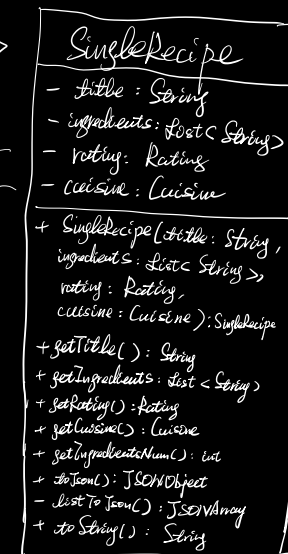 SingleRecipe
- title : String
- ingredients : List < String >
- rating : Rating
- cuisine : Cuisine
+ SingleRecipe (title : String,
ingredients : List < String >,
rating : Rating,
cuisine : Cuisine ) : SingleRecipe
+ getTitle( ) : String
+ getIngredients : List < String >
+ getRating() : Rating
+ getCuisine() : Cuisine
+ getIngredientsNum() : int
+ toJson() : JSONObject
- listToJson() : JSONArray
+ toString() : String